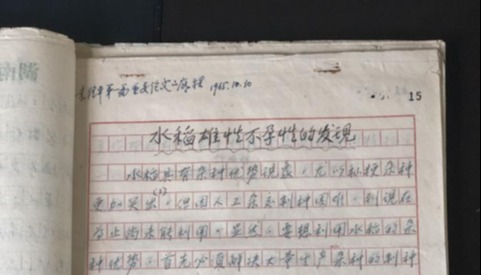 袁隆平第一篇重要论文之底稿 1965.10.10
15
水稻雄性不孕性的发现
水稻具有杂种优势现象，尤以籼粳杂种
更加突出(1)。但因人工杂交制种困难，到现在
为止尚未能利用。显然，要想利用水稻的杂
种优势，首先必须解决大量生产杂种的制种